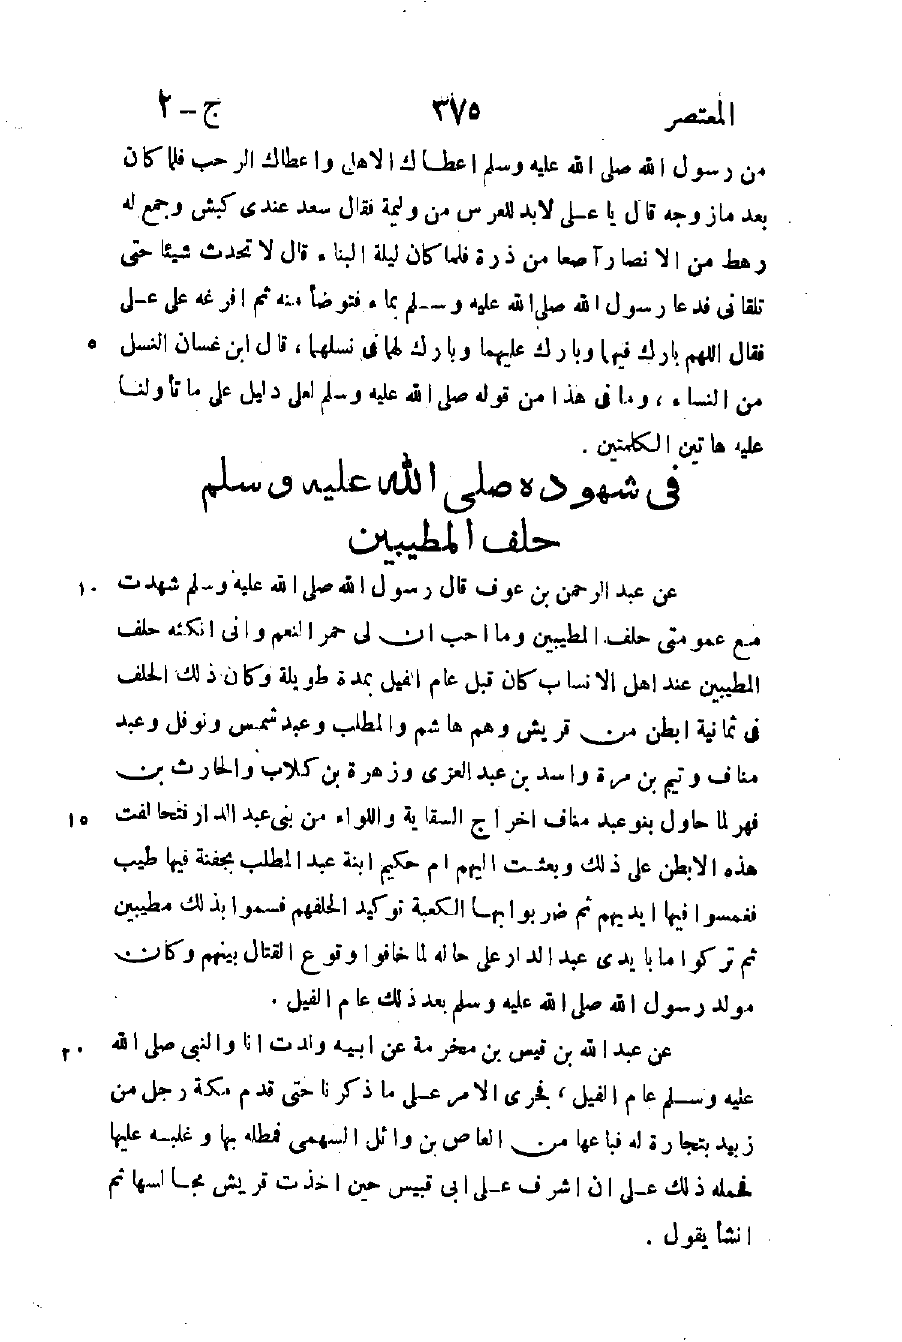 المعتصر ٣٧٥ ج-٢
من رسول الله صلى الله عليه وسلم اعطاك الاهل واعطاك الرحب فلما كان
بعد مازوجه قال يا على لابد للعرس من وليمة فقال سعد عندى كبش وجمع له
رهط من الانصار آصعا من ذرة فلما كان ليلة البناء قال لا تحدث شيئا حتى
تلقانى فدعا رسول الله صلى الله عليه وسلم بماء فتوضأ منه ثم افرغه على على
فقال اللهم بارك فيها وبارك عليهما وبارك لهما فى نسلهما، قال ابن غسان النسل ٥
من النساء، وما فى هذا من قوله صلى الله عليه وسلم لعلى دليل على ما تأولنا
عليه هاتين الكلمتين .
فى شهوده صلى الله عليه وسلم
حلف المطيبين
عن عبد الرحمن بن عوف قال رسول الله صلى الله عليه وسلم شهدت ١٠
مع عمومتى حلف المطيبين وما احب ان لى حمر النعم وانى انكثه حلف
المطيبين عند اهل الانساب كان قبل عام الفيل بمدة طويلة وكان ذلك الحلف
فى ثمانية ابطن من قريش وهم هاشم والمطلب وعبد شمس ونوفل وعبد
مناف وتيم بن مرة واسد بن عبد العزى وزهرة بن كلاب والحارث بن
فهر لما حاول بنو عبد مناف اخراج السقاية واللواء من بنى عبد الدار فتحالفت ١٥
هذه الابطن على ذلك وبعثت اليهم ام حكيم ابنة عبد المطلب بجفنة فيها طيب
فغمسوا فيها ايديهم ثم ضربوا بها الكعبة توكيد الحلفهم فسموا بذلك مطيبين
ثم تركوا ما بايدى عبد الدار على حاله لما خافوا وقوع القتال بينهم وكان
مولد رسول الله صلى الله عليه وسلم بعد ذلك عام الفيل .
عن عبد الله بن قيس بن مخرمة عن ابيه ولدت انا والنبى صلى الله ٢٠
عليه وسلم عام الفيل، فجرى الامر على ما ذكرنا حتى قدم مكة رجل من
زبيد بتجارة له فباعها من العاص بن وائل السهمى فمطله بها وغلبه عليها
فحمله ذلك على ان اشرف على ابى قبيس حين اخذت قريش مجالسها ثم
انشأ يقول .